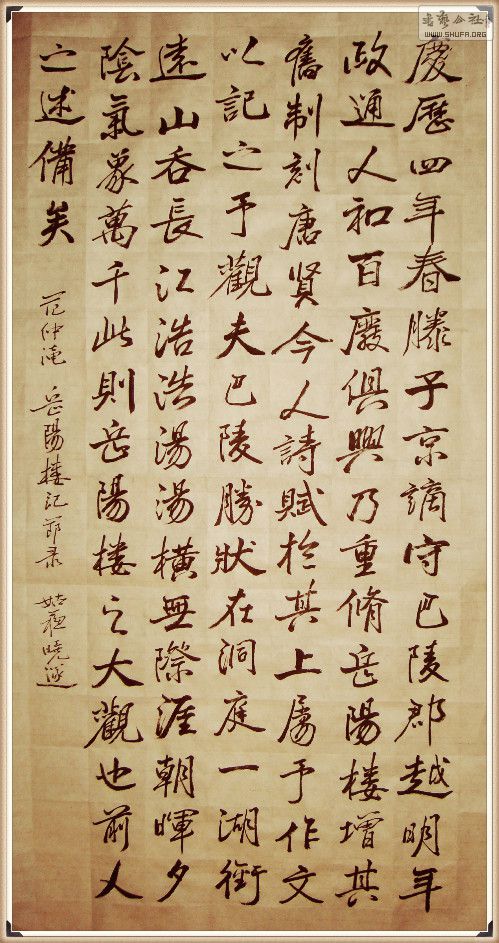 慶曆四年春滕子京謫守巴陵郡越明年
政通人和百廢俱興乃重脩岳陽樓增其
舊制刻唐賢今人詩賦於其上屬予作文
以記之予觀夫巴陵勝狀在洞庭一湖銜
遠山吞長江浩浩湯湯橫無際涯朝暉夕
陰氣象萬千此則岳陽樓之大觀也前人
之述備矣
范仲淹 岳陽樓記節录 姑蘇曉
書藝公社
WWW.SHUFA.ORG